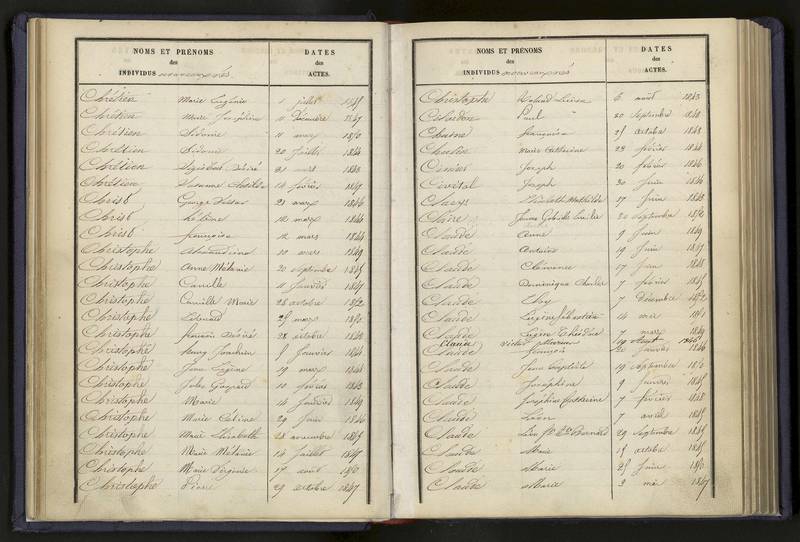 NOMS ET PRÉNOMS
des
INDIVIDUS
DATES
des
ACTES.
Chrétien Marie Eugénie 1 juillet 1845
Chrétien Marie Joséphine 11 Décembre 1847
Chrétien Sidonie 11 mars 1850
Chrétien Sidonie 20 juillet 1844
Chrétien Désiré 21 août 1843
Chrétien Suzanne 18 février 1847
Christ George 21 mars 1846
Christ 12 mars 1844
Christ françoise 12 mars 1844
Christophe 10 mars 1849
Christophe Anne Mélanie 20 septembre 1845
Christophe Camille 11 Janvier 1847
Christophe Camille Marie 26 octobre 1852
Christophe Edouard 25 mars 1850
Christophe françois Désiré 28 octobre 1848
Christophe Henry Joachim 5 Janvier 1844
Christophe Jean Eugène 19 mars 1844
Christophe Jules Gaspard 10 février 1843
Christophe Marie 14 Janvier 1849
Christophe Marie Céline 29 Juin 1846
Christophe Marie Elisabeth 28 novembre 1845
Christophe Marie Mélanie 14 juillet 1847
Christophe Marie Virginie 17 août 1850
Christophe Pierre 29 octobre 1847
NOMS ET PRÉNOMS
des
INDIVIDUS
DATES
des
ACTES.
Christophe 6 août 1843
Paul 20 Septembre 1848
françoise 25 octobre 1848
Marie Catherine 23 février 1844
Joseph 20 février 1846
Joseph 30 Juin 1846
Elisabeth Mathilde 27 Juin 1843
Claire Jeanne 20 Septembre 1850
Claude Anne 9 Juin 1849
Claude Antoine 19 Juin 1847
Claude Clémence 17 Juin 1848
Claude Dominique Charles 7 février 1845
Claude Eloy 7 Décembre 1852
Claude Eugène Sébastien 14 mai 1851
Claude Eugène Théodore 7 mars 1849
Claude Victor 19 août 1846
Claude françois 20 Janvier 1846
Claude Jean Baptiste 19 Septembre 1850
Claude Joséphine 9 Janvier 1845
Claude Joséphine Catherine 7 février 1848
Claude Léon 7 avril 1845
Claude Léon 29 Septembre 1845
Claude Marie 15 octobre 1845
Claude Marie 25 Juin 1850
Claude Marie 3 mai 1847